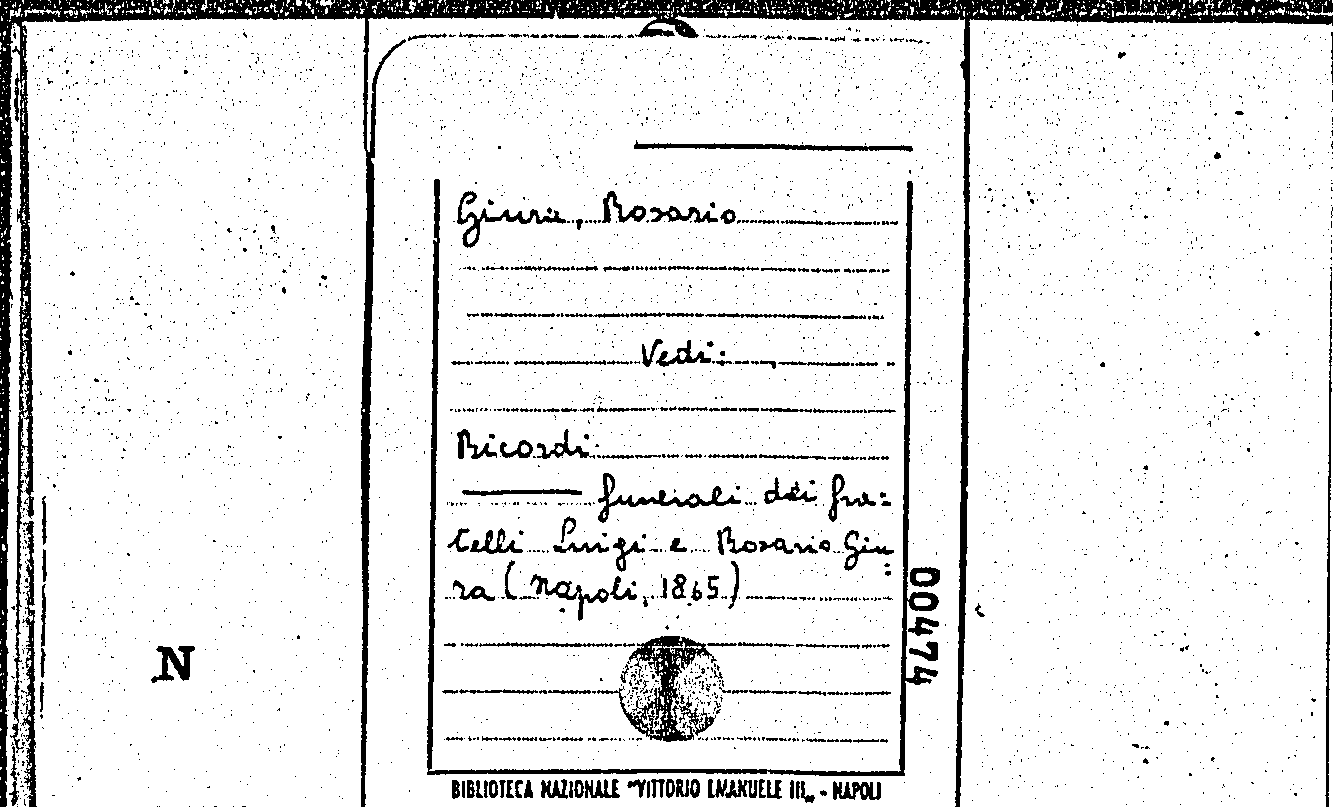 Giura, Rosario
Vedi:
Ricordi
funerali dei fra=
telli Luigi e Rosario Giu
=
ra (Napoli, 1865)
00474
N
BIBLIOTECA NAZIONALE "VITTORIO EMANUELE III„ - NAPOLI